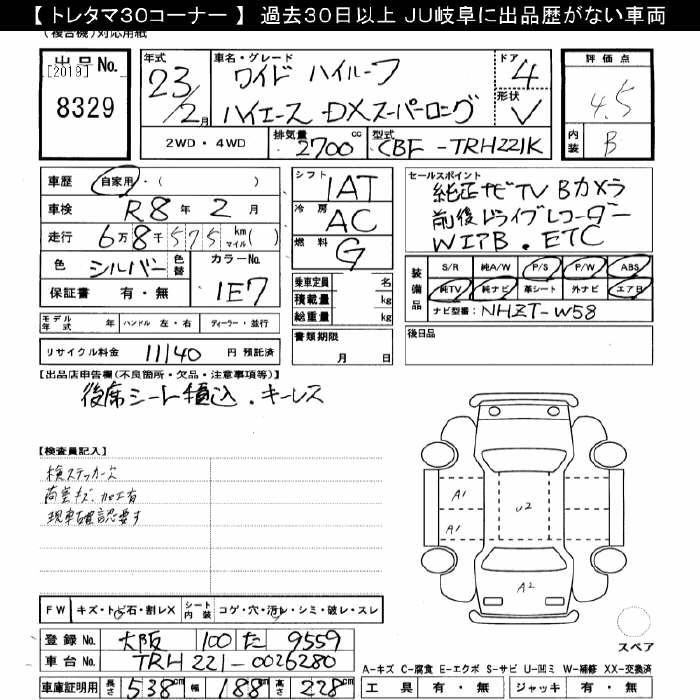 【 トレタマ30コーナー 】 過去30日以上 JU岐阜に出品歴がない車両
(複合機)対応用紙
出品No.
[2019]
8329
年式
23/2月
車名・グレード
ワイド ハイルーフ
ハイエース DXスーパーロング
ドア
4
形状
V
評価点
4.5
内装
B
2WD・4WD
排気量
2700cc
型式
CBF-TRH221K
車歴
自家用・( )
車検
R8年2月
走行
6万8千575km マイル( )
色
シルバー
色替
カラーNo.
1E7
保証書
有・無
シフト
IAT
冷房
AC
燃料
G
乗車定員 名
積載量 kg
総重量 kg
セールスポイント
純正ナビTV Bカメラ
前後ドライブレコーダー
WエアB. ETC
装備品
S/R 純A/W P/S P/W ABS
純TV 純ナビ 革シート 外ナビ エアB
ナビ型番: NHZT-W58
モデル年式 年 ハンドル 左・右 ディーラー・並行
リサイクル料金 11140 円 預託済
書類期限
月 日
後日品
【出品店申告欄(不良箇所・欠品・注意事項等)】
後席シート積込. キーレス
【検査員記入】
検ステッカー欠
荷室キズ.加工有
現車確認要す
A1
A1
U2
A2
スペア
FW キズ・トビ石・割レX
シート内装 コゲ・穴・汚レ・シミ・破レ・スレ
登録No. 大阪 100 た 9559
車台No. TRH221-0026280
車庫証明用 長さ 538cm 幅 188cm 高さ 228cm
A-キズ C-腐食 E-エクボ S-サビ U-凹ミ W-補修 XX-交換済
工具 有・無 ジャッキ 有・無